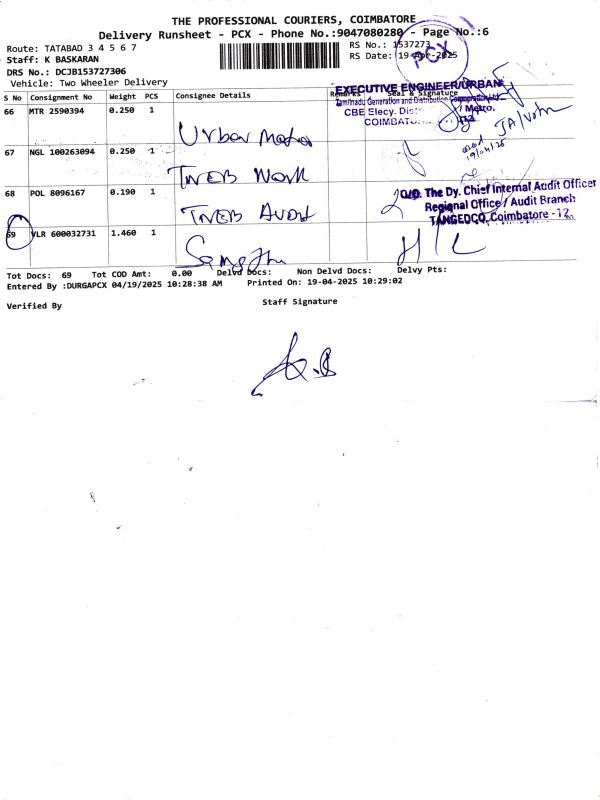 THE PROFESSIONAL COURIERS, COIMBATORE
Delivery Runsheet - PCX - Phone No.:9047080280 - Page No.:6
Route: TATABAD 3 4 5 6 7
RS No.: 1537273
Staff: K BASKARAN
RS Date: 19-Apr-2025
PCX
DRS No.: DCJB153727306
Vehicle: Two Wheeler Delivery
S No Consignment No Weight PCS Consignee Details Remarks Seal & Signature
66 MTR 2590394 0.250 1 Urban Metro
EXECUTIVE ENGINEER/URBAN
Tamilnadu Generation and Distribution Corporation
CBE Elecy. Dist / Metro,
COIMBATO
19/04/25
67 NGL 100263094 0.250 1 TNEB Work
68 POL 8096167 0.190 1 TNEB Audit
O/O. The Dy. Chief Internal Audit Officer
Regional Office / Audit Branch
TANGEDCO, Coimbatore - 12.
69 VLR 600032731 1.460 1
Tot Docs: 69 Tot COD Amt: 0.00 Delvd Docs: Non Delvd Docs: Delvy Pts:
Entered By :DURGAPCX 04/19/2025 10:28:38 AM Printed On: 19-04-2025 10:29:02
Verified By Staff Signature